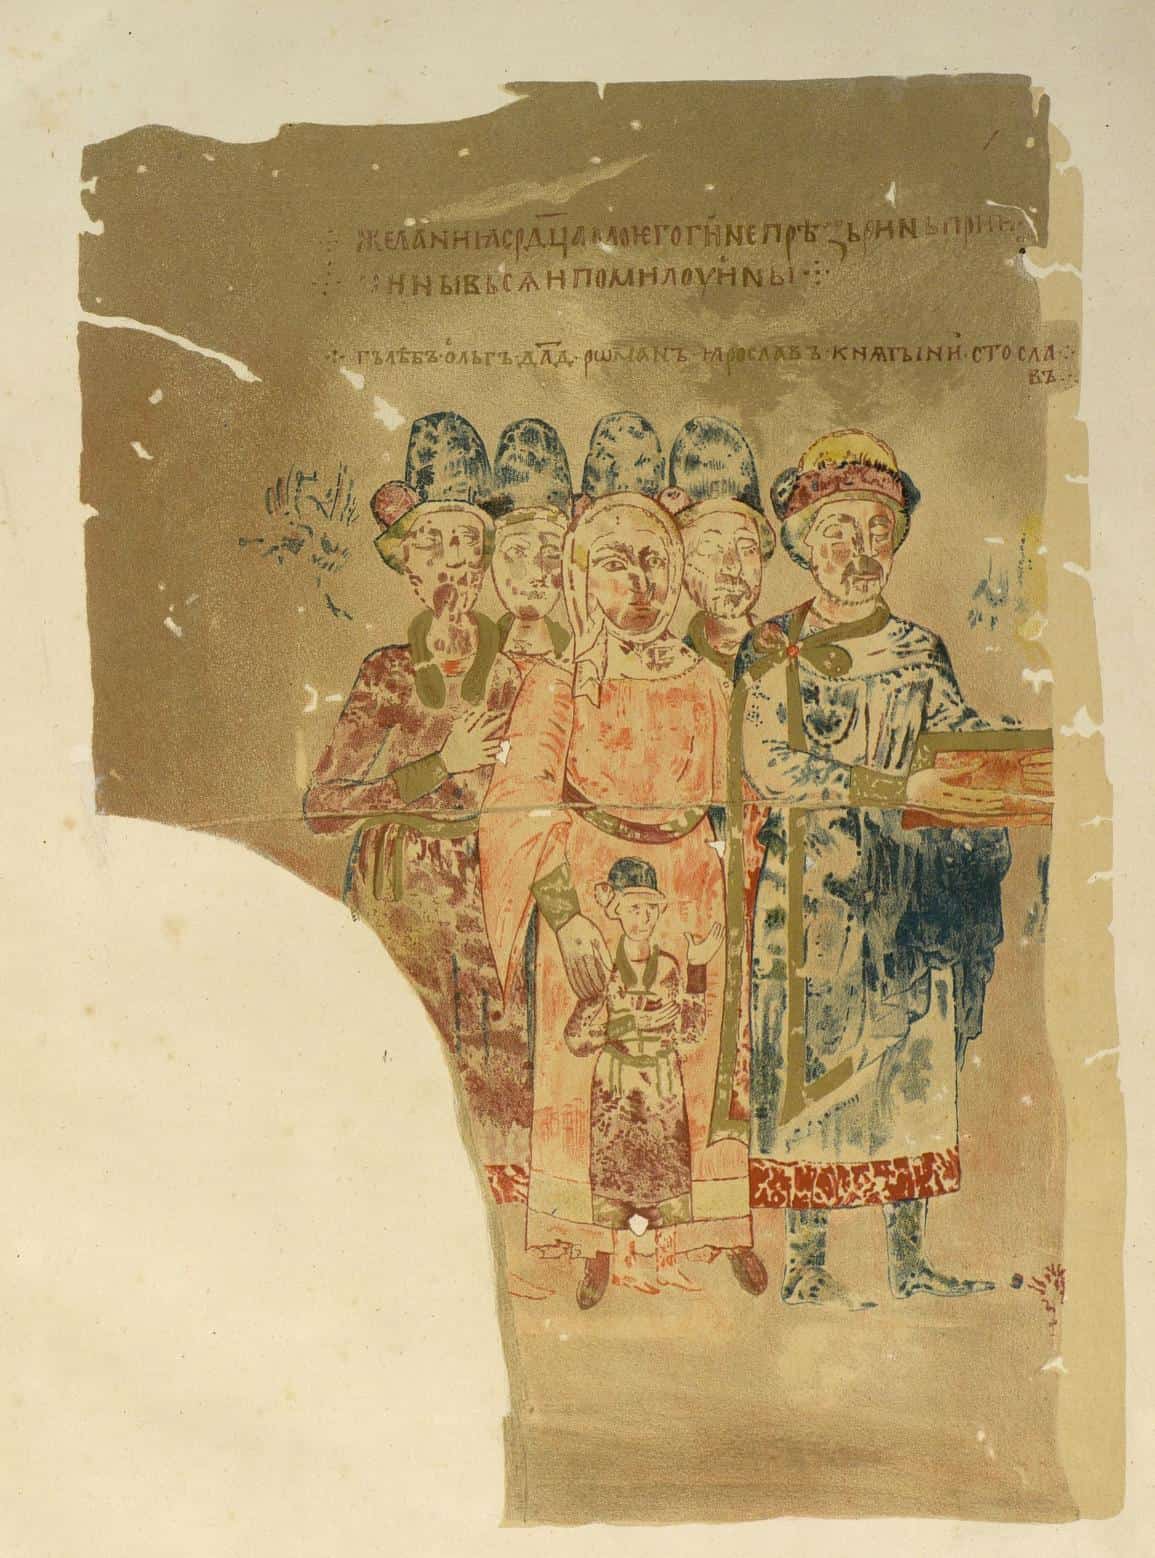 ЖЕЛАНИꙖ СРД҃ЦА МОЮГО ГИ҃ НЕ ПРѢЗЬРИ НЪ ПРИИ
ИНЫ ВЬСѦ И ПОМИЛОУИ НЫ
ГЪЛѢБЪ · ОЛЬГЪ · ДАД҃ · РѠМАНЪ · ꙖРОСЛАВЪ · КНѦГЫНИ · СТОСЛА
ВЪ